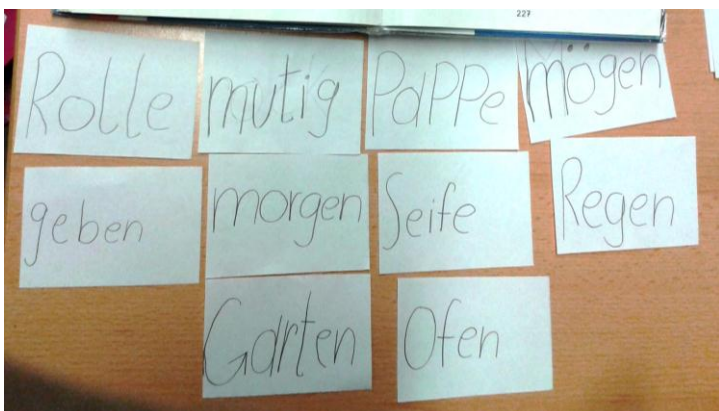 227
Rolle mutig Pappe mögen
geben morgen Seife Regen
Garten Ofen